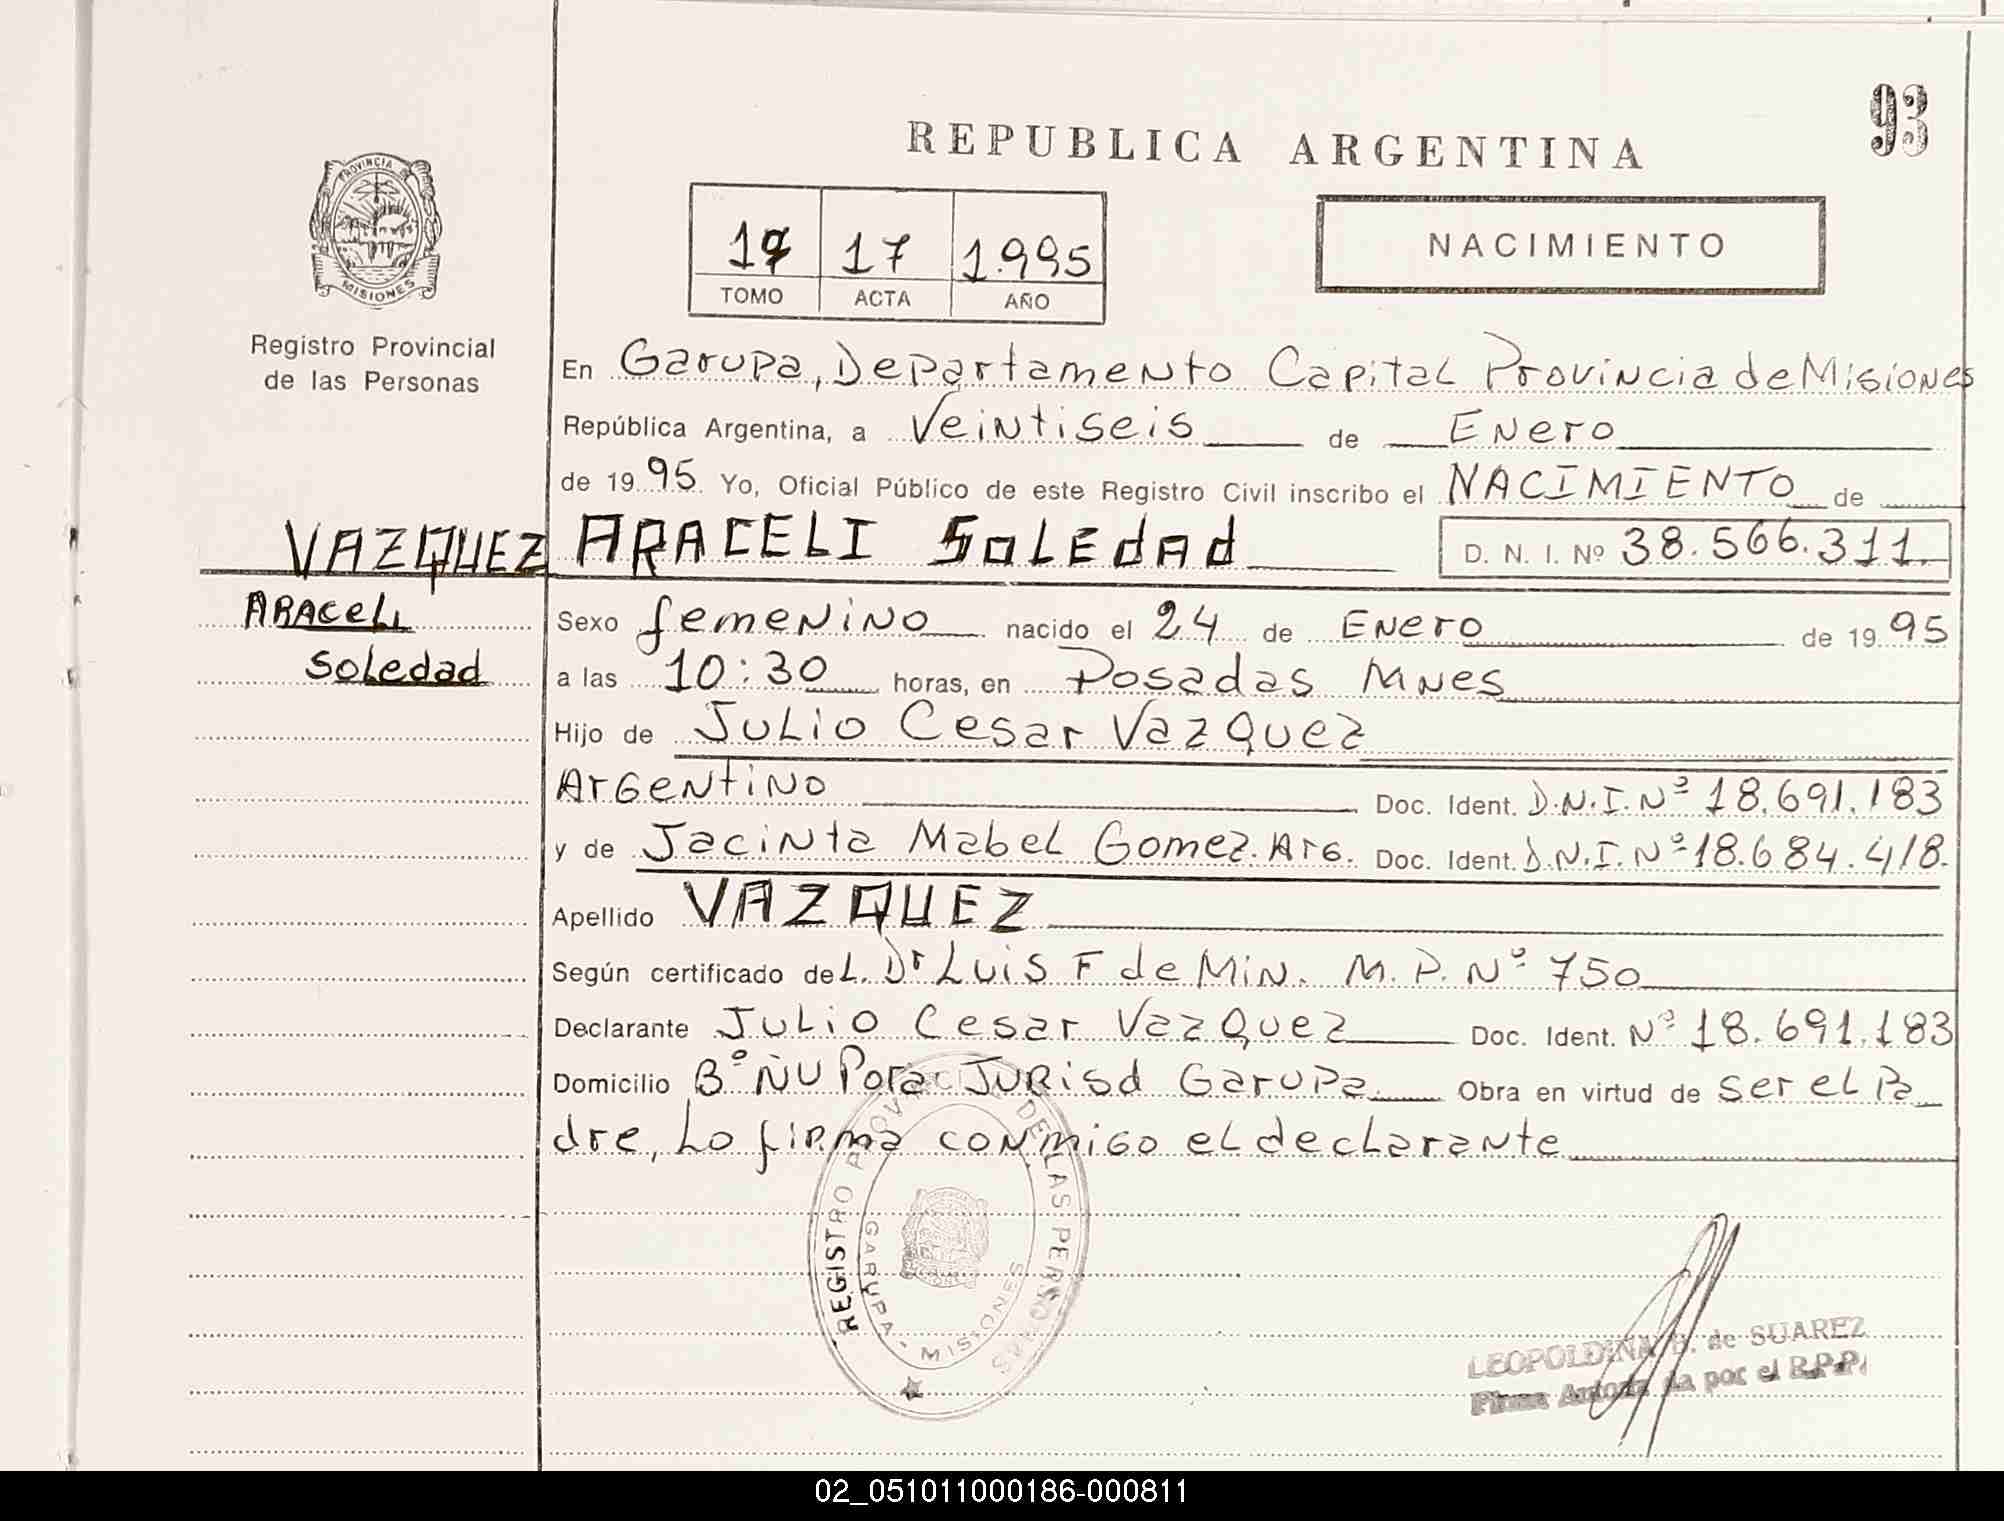 93
REPUBLICA ARGENTINA
PROVINCIA
MISIONES
Registro Provincial
de las Personas
17 1.995
TOMO ACTA AÑO
NACIMIENTO
En Garupa, Departamento Capital Provincia de Misiones
República Argentina, a Veintiseis de Enero
de 1995 Yo, Oficial Público de este Registro Civil inscribo el NACIMIENTO de
VAZQUEZ ARACELI SOLEDAD D. N. I. Nº 38.566.311.
ARACELI
Soledad
Sexo femenino nacido el 24 de Enero de 1995
a las 10:30 horas, en Posadas Mnes
Hijo de Julio Cesar Vazquez
Argentino Doc. Ident. D.N.I. Nº 18.691.183
y de Jacinta Mabel Gomez. Arg. Doc. Ident. D.N.I. Nº 18.684.418.
Apellido VAZQUEZ
Según certificado deL. Dr Luis F de Min. M.P. Nº 750
Declarante Julio Cesar Vazquez Doc. Ident. Nº 18.691.183
Domicilio Bº ÑU Pora Jurisd Garupa Obra en virtud de ser el Pa
dre, Lo firma conmigo el declarante
REGISTRO PROVINCIAL DE LAS PERSONAS
GARUPA - MISIONES
LEOPOLDINA B. de SUAREZ
Firma Autorizada por el R.P.P.
02_051011000186-000811